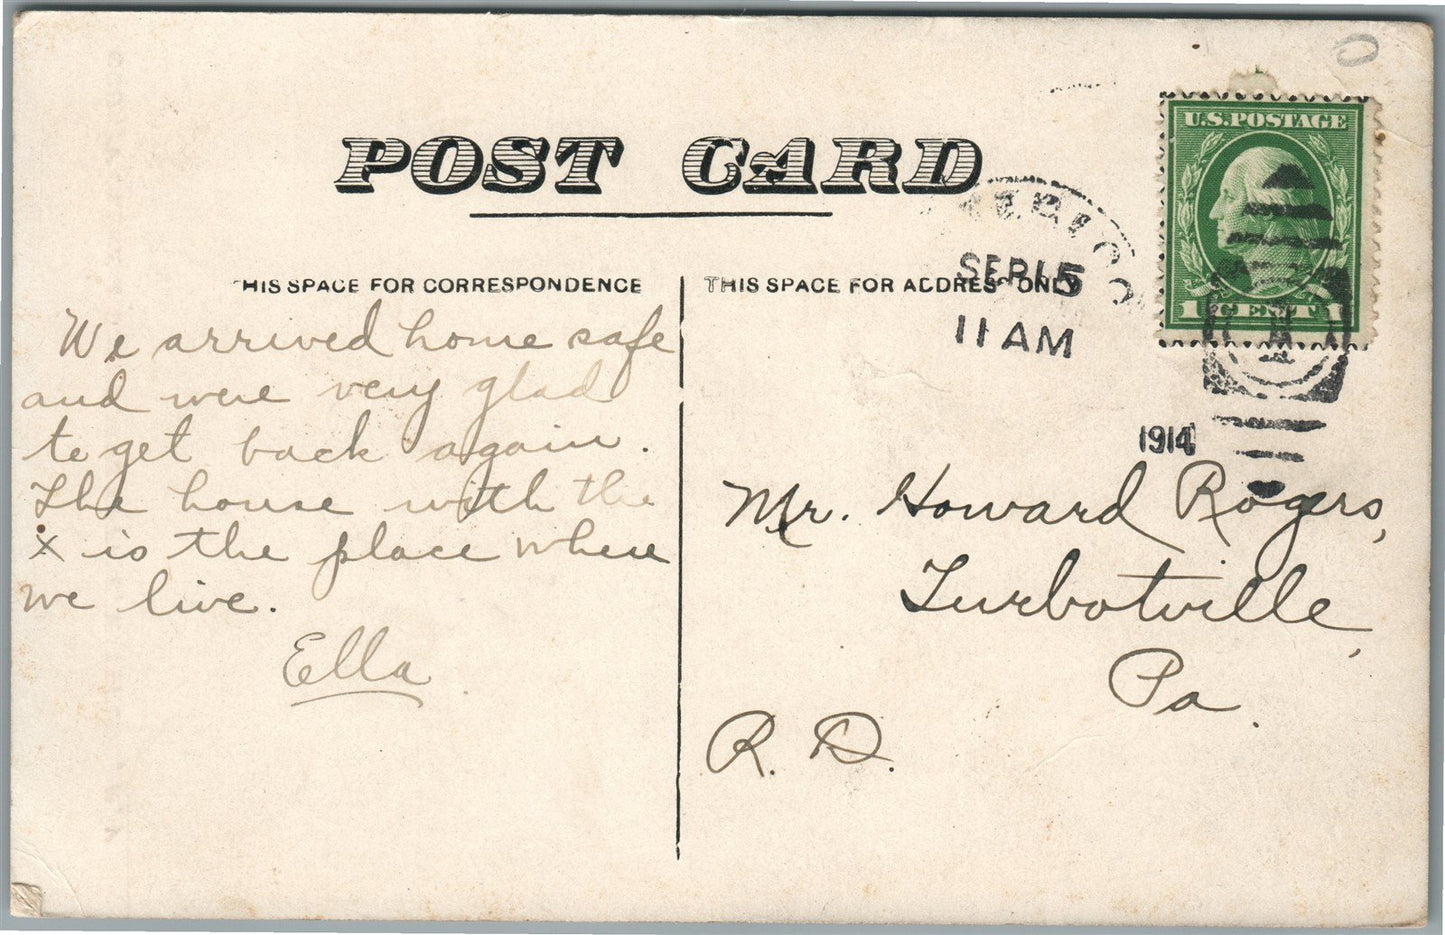 POST CARD
THIS SPACE FOR CORRESPONDENCE
We arrived home safe
and were very glad
to get back again.
The house with the
x is the place where
we live.
Ella
THIS SPACE FOR ADDRESS ONLY
U.S. POSTAGE
1 CENT 1
SEP 15
11 AM
1914
Mr. Howard Rogers,
Turbotville,
Pa.
R. D.